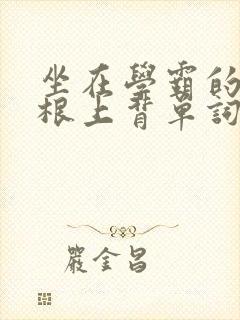 坐在學霸的
根上背單詞
嚴金昌